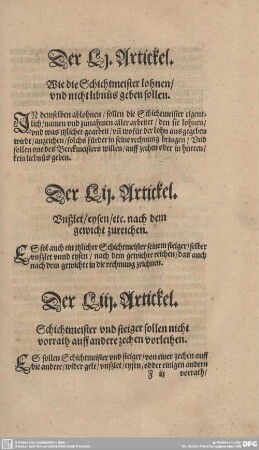 Der Lj. Artickel.
Wie die Schichtmeister lohnen/
vnd nicht libnüs geben sollen.
IN demselben ablohnen / sollen die Schichtmeister eigent-
lich/namen vnd zunahmen aller arbeiter / den sie lohnen/
vnd was itzlicher geardeit / vñ wofür der lohn aus gegeben
würde/anzeichen/solchs fürder in seine rechnung bringen / Vnd
sollen vnt des Berckmeisters willen/auff zechen oder in hütten/
kein liebnüs geben.
Der Lij. Artickel.
Vnßlet/eysen/etc. nach dem
gewicht zureichen.
ES sol auch ein itzlicher Schichtmeister seinem steiger/selber
vnßlet vnnd eysen / nach dem gewichte reichen/das auch
nach dem gewichte in die rechnung zeichnen.
Der Liij. Artickel.
Schichtmeister vnd steiger sollen nicht
vorrath auff andere zechen vorleihen.
ES sollen Schichtmeister vnd steiger/von einer zechen auff
die andere/wider gelt/vnßlet/eysen/odder einigen andern
F iij vorrath/
DFG